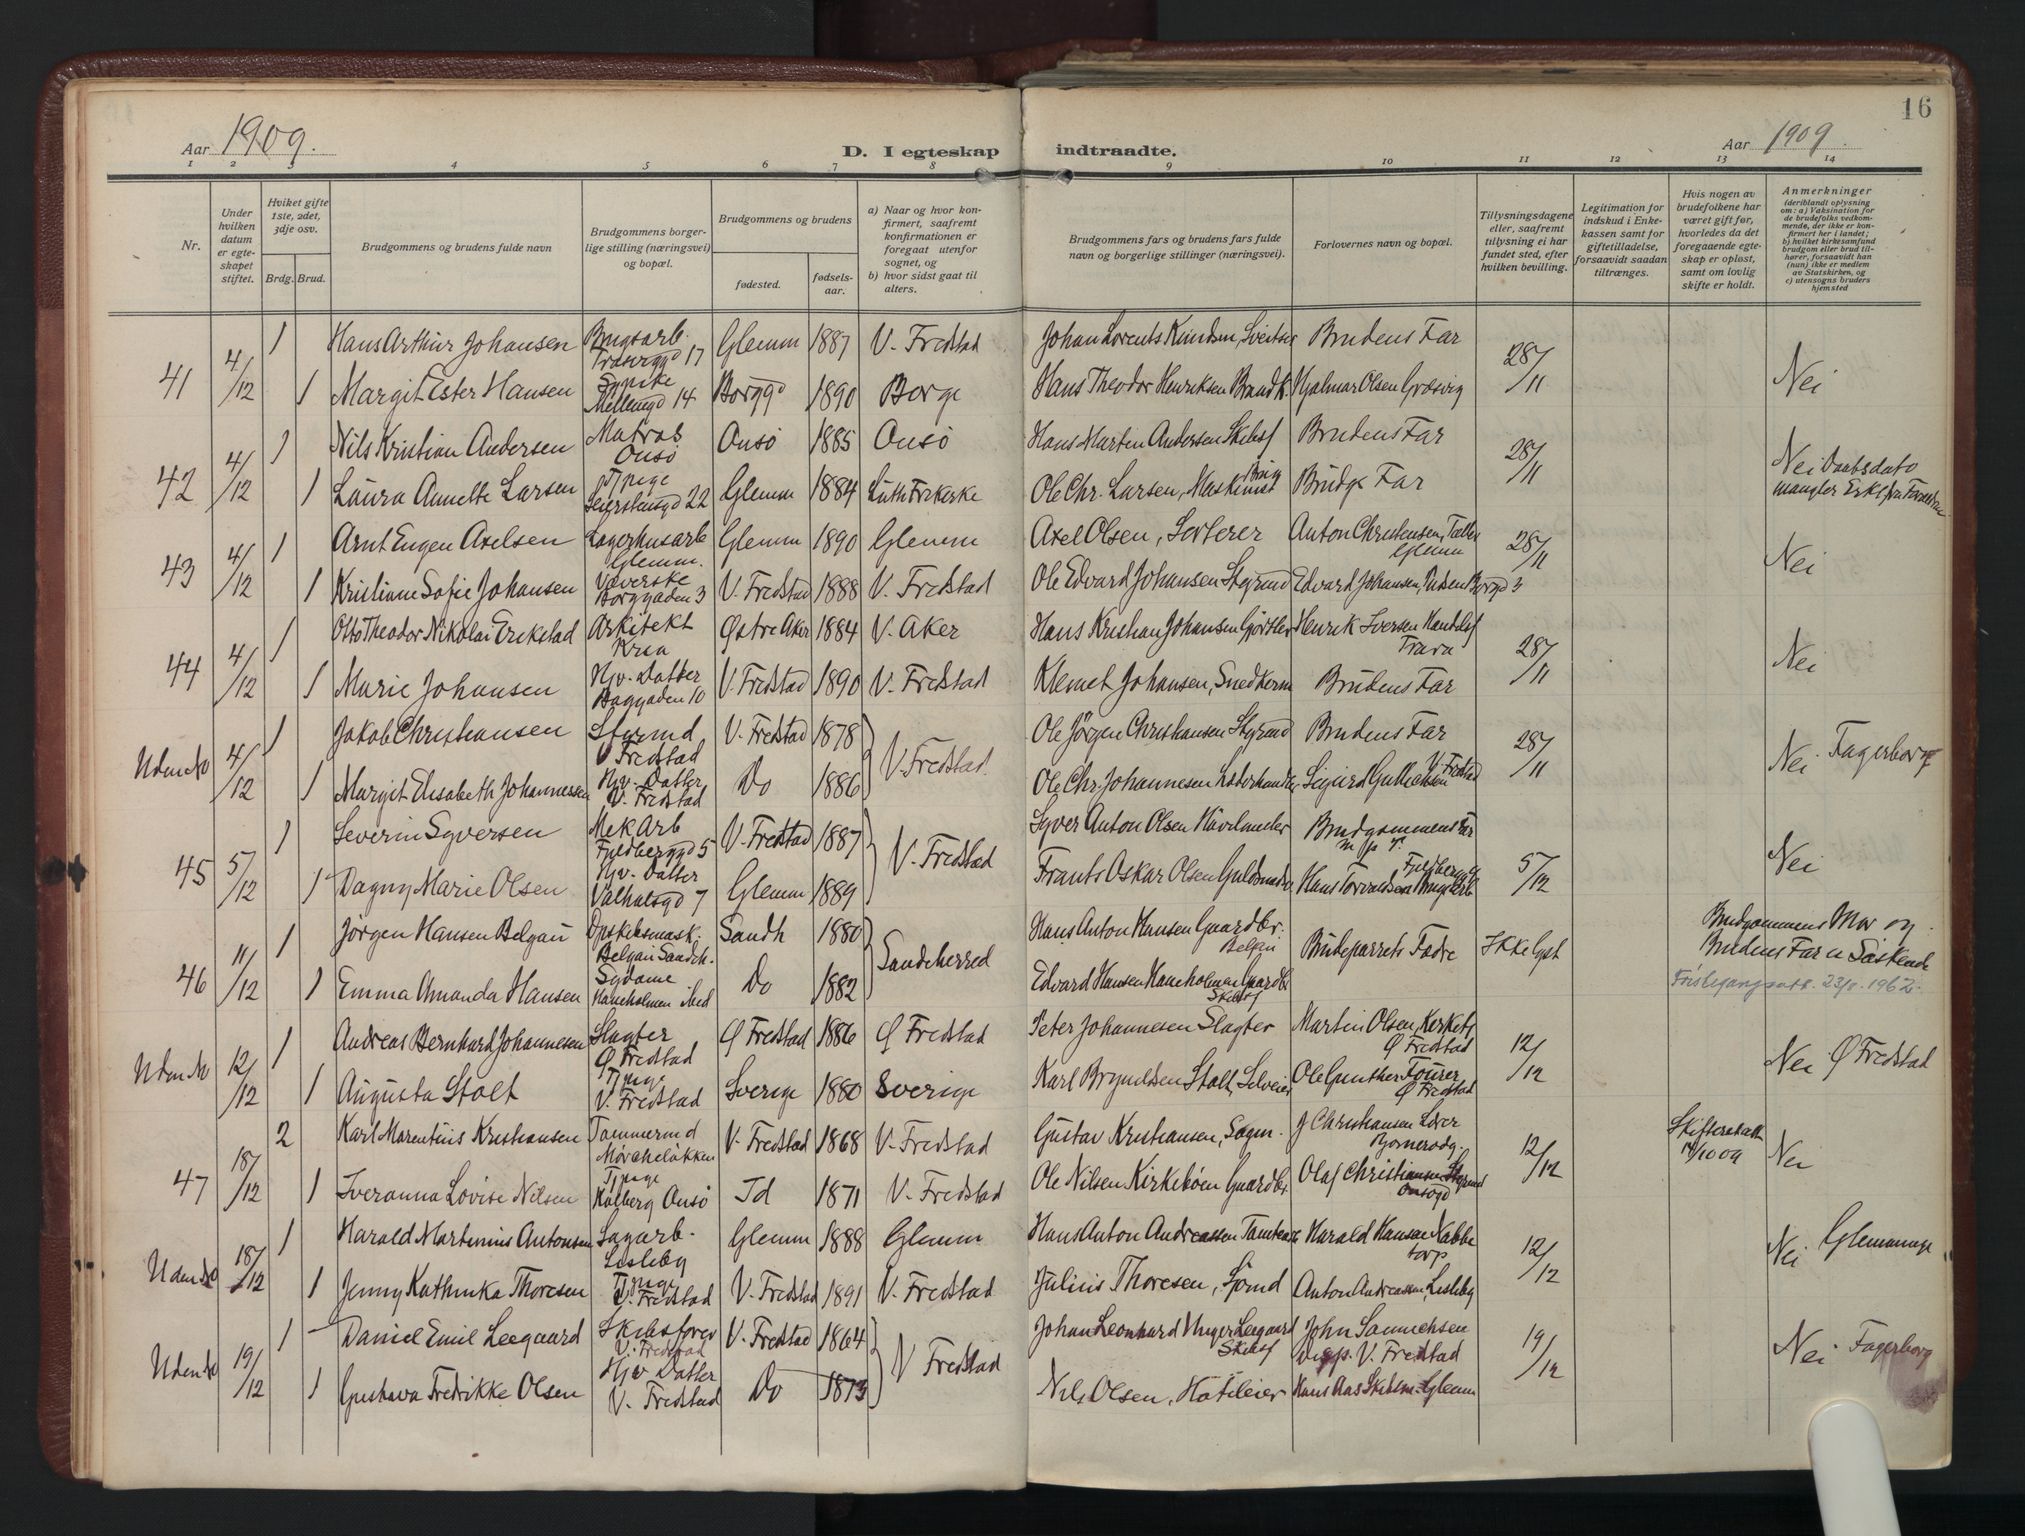 16
Aar 1909.
D. I egteskap indtraadte.
Aar 1909
1 2 3 4 5 6 7 8 9 10 11 12 13 14
Nr.
Under hvilken datum er egteskapet stiftet.
Hviket gifte 1ste, 2det, 3dje osv.
Brdg. Brud.
Brudgommens og brudens fulde navn
Brudgommens borgerlige stilling (næringsvei) og bopæl.
Brudgommens og brudens
fødested.
fødselsaar.
a) Naar og hvor konfirmert, saafremt konfirmationen er foregaat utenfor sognet, og
b) hvor sidst gaat til alters.
Brudgommens fars og brudens fars fulde navn og borgerlige stillinger (næringsvei).
Forlovernes navn og bopæl.
Tillysningsdagene eller, saafremt tillysning ei har fundet sted, efter hvilken bevilling.
Legitimation for indskud i Enkekassen samt for giftetilladelse, forsaavidt saadan tiltrænges.
Hvis nogen av brudefolkene har været gift før, hvorledes da det foregaaende egteskap er opløst, samt om lovlig skifte er holdt.
Anmerkninger
(deriblandt oplysning om: a) Vaksination for de brudefolks vedkommende, der ikke er konfirmert her i landet; b) hvilket kirkesamfund brudgom eller brud tilhører, forsaavidt han (hun) ikke er medlem av Statskirken, og c) utensogns bruders hjemsted
41 4/12 1 Hans Arthur Johansen Brugsarb. 17 Glemm 1887 V. Fredstad Johan Lorents Knudsen, Brudens Far 28/11 Nei
1 Margit Ester Hansen Sypike 14 Borge 1890 Borge Hans Theodor Henriksen Hjalmar Olsen Græsvig
42 4/12 1 Nils Kristian Andersen Matros Onsø Onsø 1885 Onsø Hans Martin Andersen Skibsf Brudens Far 28/11 Nei Daabsdato mangler
1 Laura Annette Larsen Tjpige 22 Glemm 1884 Luth Frikirke Ole Chr. Larsen, Maskinist Brudg Far
43 4/12 1 Arnt Eugen Axelsen Lagerhusarb Glemm. Glemm 1890 Glemm Axel Olsen, Sorterer Anton Christensen, Glemm 28/11 Nei
1 Kristiane Sofie Johansen Væverske Borggaden 3 V. Fredstad 1888 V. Fredstad Ole Edvard Johansen Styrmd Edvard Johansen, 3
44 4/12 1 Otto Theodor Nikolai Erikstad Arkitekt Kria Østre Aker 1884 V. Aker Hans Kristian Johansen Gjørtler Henrik Iversen Handelsf Trara 28/11 Nei
1 Marie Johansen Hjv. Datter 10 V. Fredstad 1890 V. Fredstad Klemet Johansen, Snedkerm Brudens Far
Uden No 4/12 1 Jakob Christiansen Styrmd V Fredstad V. Fredstad 1878 V. Fredstad. Ole Jørgen Christiansen Styrmd Brudens Far 28/11 Nei Fagerborg
1 Margit Elisabeth Johannessen Hjv. Datter V. Fredstad Do 1886 Ole Chr. Johannesen Sigurd V Fredstad
45 5/12 1 Severin Syversen Mek Arb 5 V. Fredstad 1887 V. Fredstad Syver Anton Olsen Brudgommens Far 5/12 Nei
1 Dagny Marie Olsen Hjv. Datter 7 Glemm 1889 Frants Oskar Olsen Guldsmed Hans Torvaldsen
46 11/12 1 Jørgen Hansen Belgau Belgau Sandeh. Sandh 1880 Sandeherred Hans Anton Hansen Gaardbr. Belgau Brudeparrets Fædre Ikke lyst Brudgommens Mor og Brudens Far er Søskende
1 Emma Amanda Hansen Sydame Haneholmen ibid Do 1882 Edvard Hansen Haneholmen Gaardbr Skibsf 23/8. 1962.
Uden No 12/12 1 Andreas Bernhard Johannesen Slagter Ø Fredstad Ø Fredstad 1886 Ø Fredstad Peter Johannesen Slagter Martin Olsen, Ø Fredstad 12/12 Nei Ø Fredstad
1 Augusta Stolt Tjpige V. Fredstad Sverige 1880 Sverige Karl Stolt, Ole Gunther Ø Fredstad
47 18/12 2 Karl Marentius Kristiansen Tømmermd V. Fredstad 1868 V. Fredstad Gustav Kristiansen, J Christiansen 12/12 Skifteattest Nei
1 Iveranna Lovise Nilsen Tjpige Kolberg Onsø Id 1871 V. Fredstad Ole Nilsen Kirkebøen Gaardbr. Olaf Christiansen Styrmd
Uden No 18/12 1 Harald Martinius Antonsen Sagarb. Lisleby Glemm 1888 Glemm Hans Anton Andreassen Harald Hansen 12/12 Nei Glemminge
1 Jenny Kathinka Thoresen Tjpige V. Fredstad V. Fredstad 1891 V. Fredstad Julius Thoresen, Sjømd Anton Andreassen, Lisleby
Uden No 19/12 1 Daniel Emil Leegaard Skibsfører V. Fredstad V. Fredstad 1864 V Fredstad Johan Leonhard Unger Leegaard Skibsf John Samuelsen Disp. V. Fredstad 19/12 Nei. Fagerborg
1 Gustava Fredrikke Olsen Hjv Datter V. Fredstad Do 1873 Nils Olsen, Hotileier Hans Aas Glemm